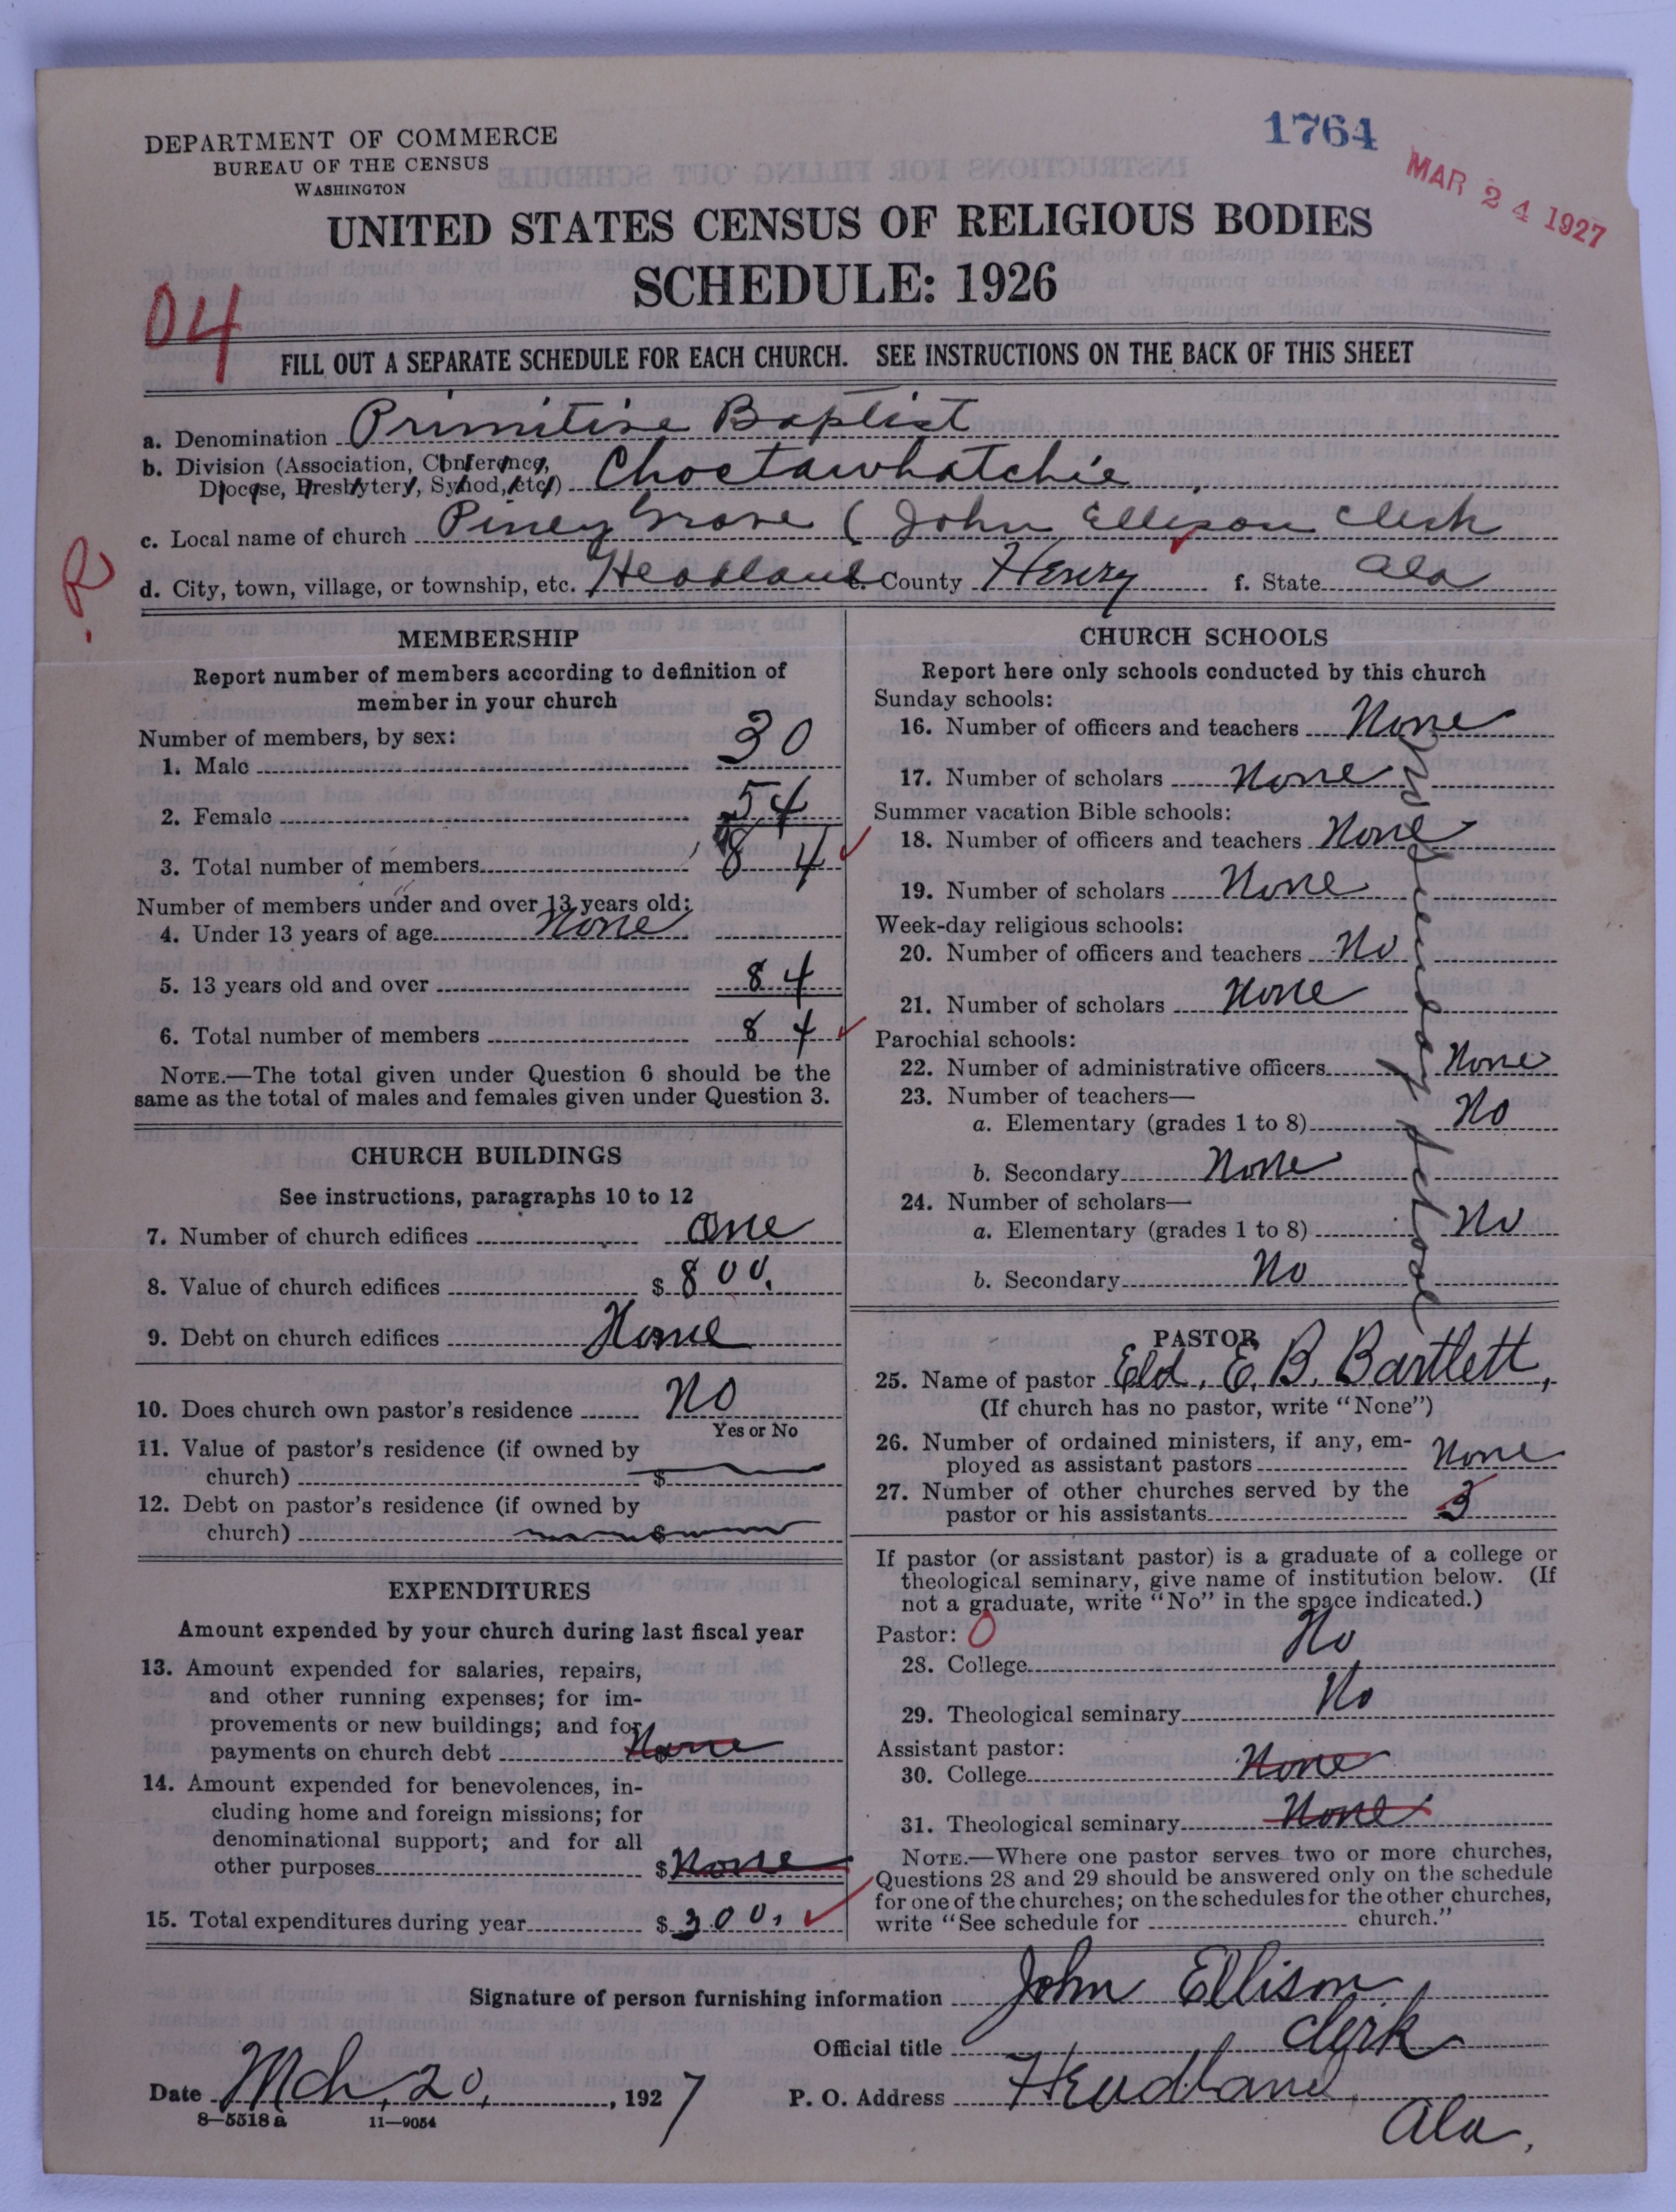 DEPARTMENT OF COMMERCE
BUREAU OF THE CENSUS
WASHINGTON
1764
MAR 24 1927
UNITED STATES CENSUS OF RELIGIOUS BODIES
SCHEDULE: 1926
04
FILL OUT A SEPARATE SCHEDULE FOR EACH CHURCH. SEE INSTRUCTIONS ON THE BACK OF THIS SHEET
a. Denomination Primitive Baptist
b. Division (Association, Conference,
Diocese, Presbytery, Synod, etc.) Choctawhatchie
c. Local name of church Piney Grove (John Ellison Clerk
R.
d. City, town, village, or township, etc. Headland e. County Henry f. State Ala
MEMBERSHIP
Report number of members according to definition of
member in your church
Number of members, by sex:
1. Male 30
2. Female 54
3. Total number of members 84
Number of members under and over 13 years old:
4. Under 13 years of age None
5. 13 years old and over 84
6. Total number of members 84
NOTE.—The total given under Question 6 should be the
same as the total of males and females given under Question 3.
CHURCH BUILDINGS
See instructions, paragraphs 10 to 12
7. Number of church edifices one
8. Value of church edifices $ 800.
9. Debt on church edifices None
10. Does church own pastor's residence No
Yes or No
11. Value of pastor's residence (if owned by
church) $
12. Debt on pastor's residence (if owned by
church) $
EXPENDITURES
Amount expended by your church during last fiscal year
13. Amount expended for salaries, repairs,
and other running expenses; for im-
provements or new buildings; and for
payments on church debt $ None
14. Amount expended for benevolences, in-
cluding home and foreign missions; for
denominational support; and for all
other purposes $ None
15. Total expenditures during year $ 300.
CHURCH SCHOOLS
Report here only schools conducted by this church
Sunday schools:
16. Number of officers and teachers None
17. Number of scholars None
Summer vacation Bible schools:
18. Number of officers and teachers None
19. Number of scholars None
Week-day religious schools:
20. Number of officers and teachers No
21. Number of scholars None
Parochial schools:
22. Number of administrative officers None
23. Number of teachers—
a. Elementary (grades 1 to 8) No
b. Secondary None
24. Number of scholars—
a. Elementary (grades 1 to 8) No
b. Secondary No
PASTOR
25. Name of pastor Eld. E. B. Bartlett,
(If church has no pastor, write "None")
26. Number of ordained ministers, if any, em-
ployed as assistant pastors None
27. Number of other churches served by the
pastor or his assistants 3
If pastor (or assistant pastor) is a graduate of a college or
theological seminary, give name of institution below. (If
not a graduate, write "No" in the space indicated.)
Pastor: 0
28. College No
29. Theological seminary No
Assistant pastor:
30. College None
31. Theological seminary None
NOTE.—Where one pastor serves two or more churches,
Questions 28 and 29 should be answered only on the schedule
for one of the churches; on the schedules for the other churches,
write "See schedule for church."
Signature of person furnishing information John Ellison
Official title clerk
Date Mch, 20, , 1927 P. O. Address Headland
Ala.
8-5518a 11-9054